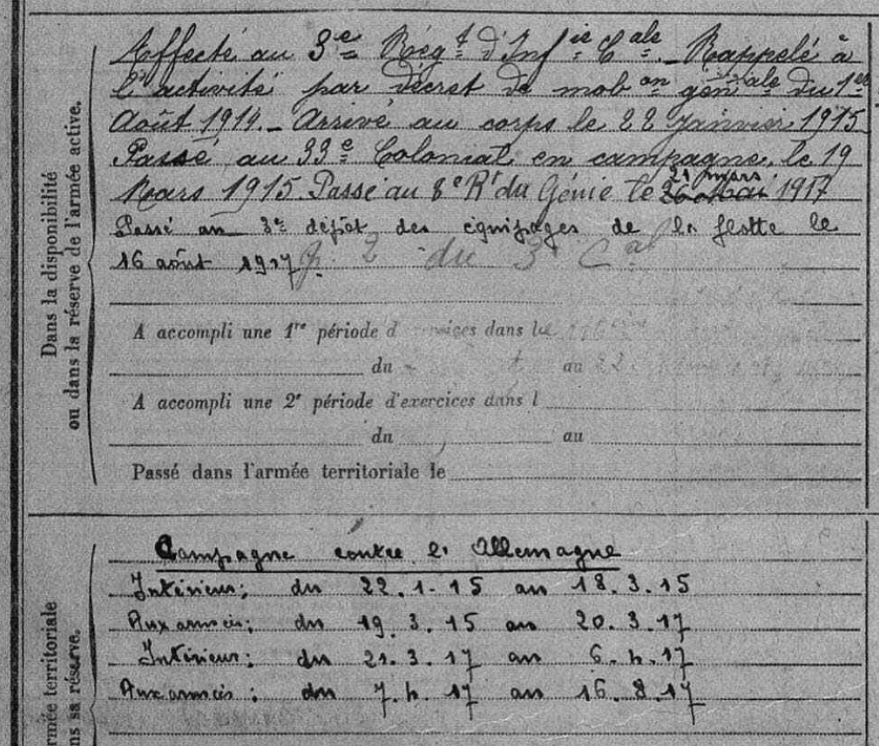 Dans la disponibilité
ou dans la réserve de l'armée active.
Affecté au 3e Régt d'Infie Cale _ Rappelé à
l'activité par décret de mobon génale du 1er
Août 1914. _ Arrivé au corps le 22 Janvier 1915
Passé au 33e Colonial en campagne le 19
21 mars
Mars 1915. Passé au 8e Rt du Génie le 26 Mai 1917
Passé au 3e dépôt des équipages de la flotte le
16 août 1917 2 du 3 Cal
A accompli une 1re période d'exercices dans le
du au 22
A accompli une 2e période d'exercices dans l
du au
Passé dans l'armée territoriale le
rmée territoriale
ns sa réserve.
Campagne contre l'Allemagne
Intérieur: du 22.1.15 au 18.3.15
Aux armées: du 19.3.15 au 20.3.17
Intérieur: du 21.3.17 au 6.4.17
Aux armées: du 7.4.17 au 16.8.17